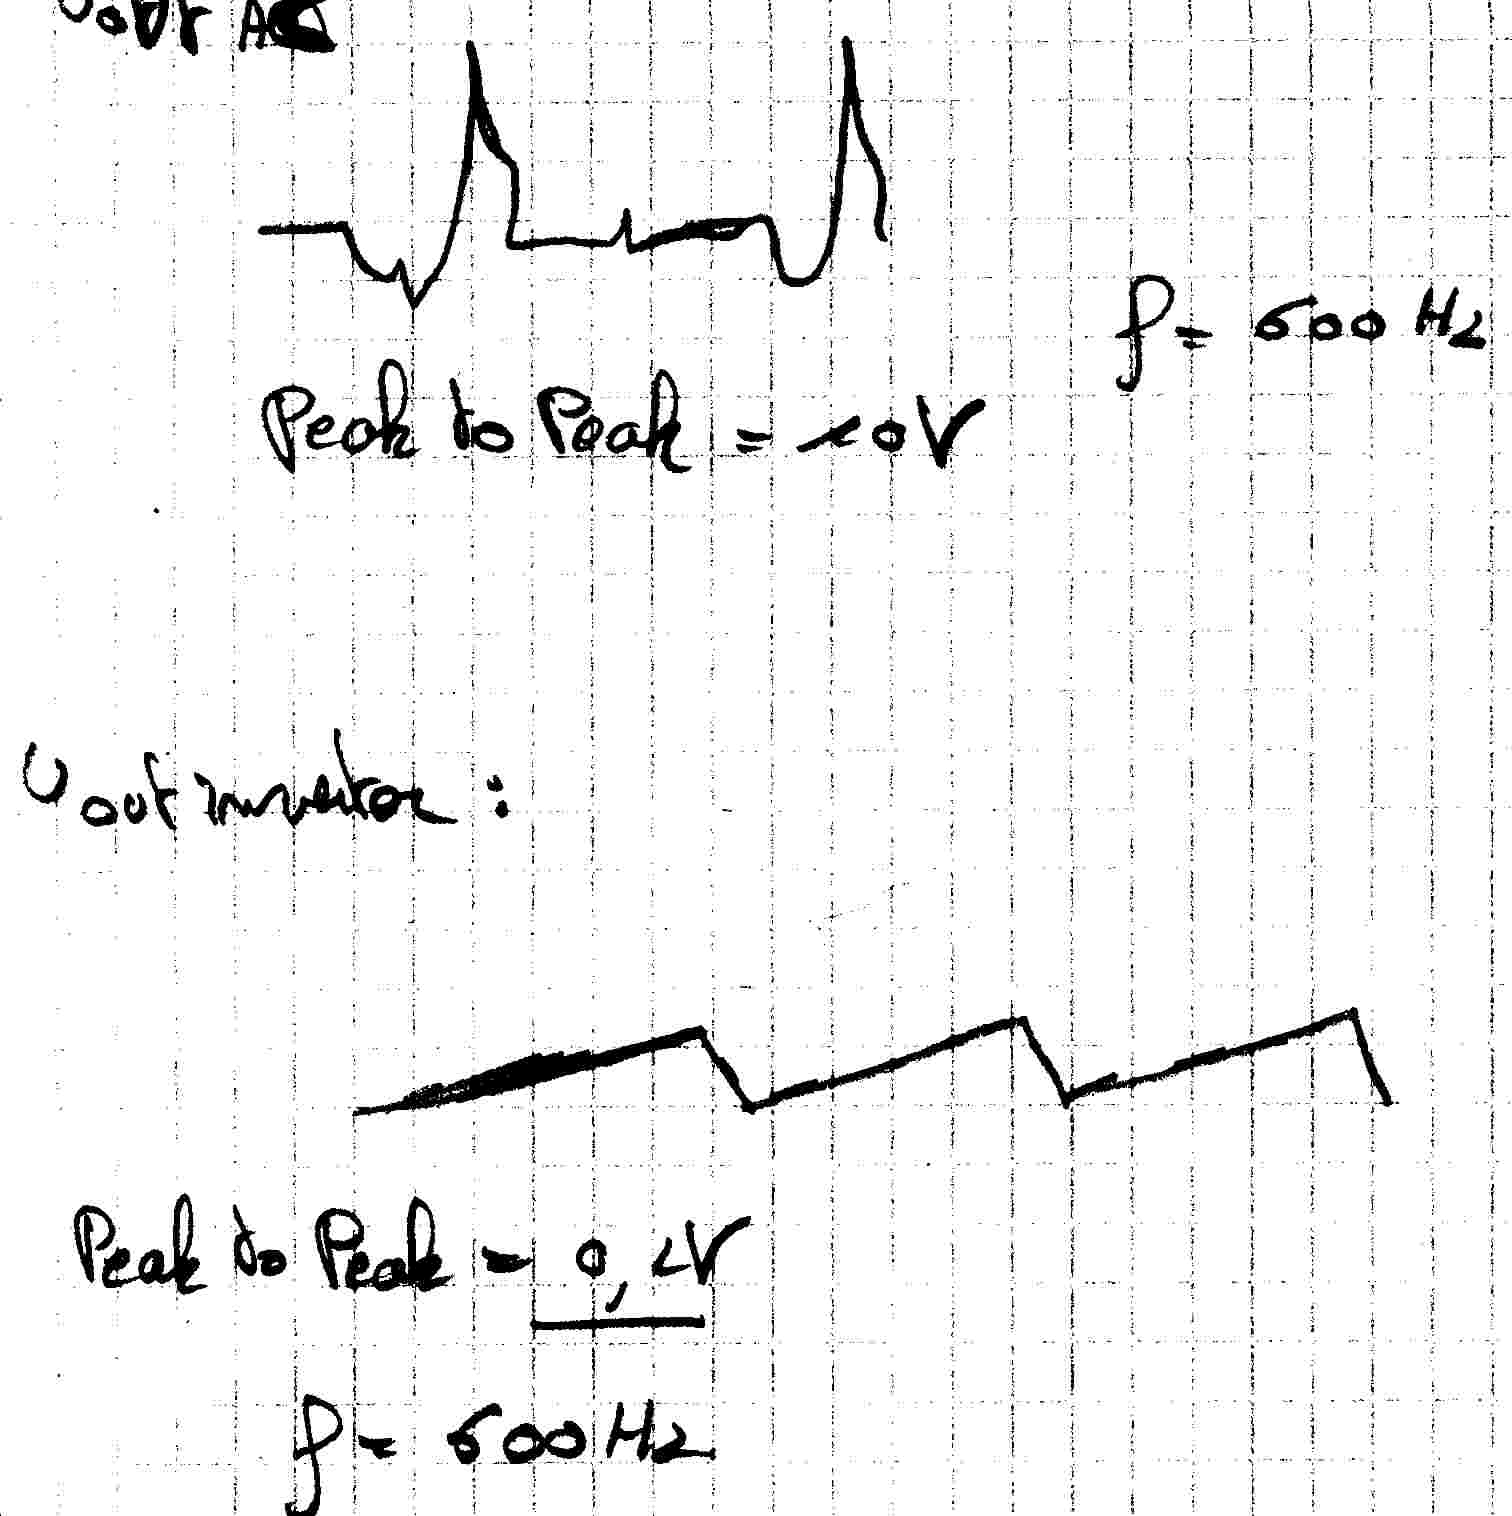 Uout AC
f= 600 Hz
Peak to Peak = 10V
Uout invertor :
Peak to Peak = 0,1V
f= 600Hz